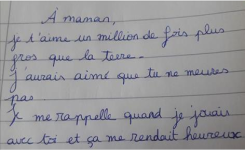 A maman,
je t'aime un million de fois plus
gros que la terre.
J'aurais aimé que tu ne meures
pas
Je me rappelle quand je jouais
avec toi et ça me rendait heureux